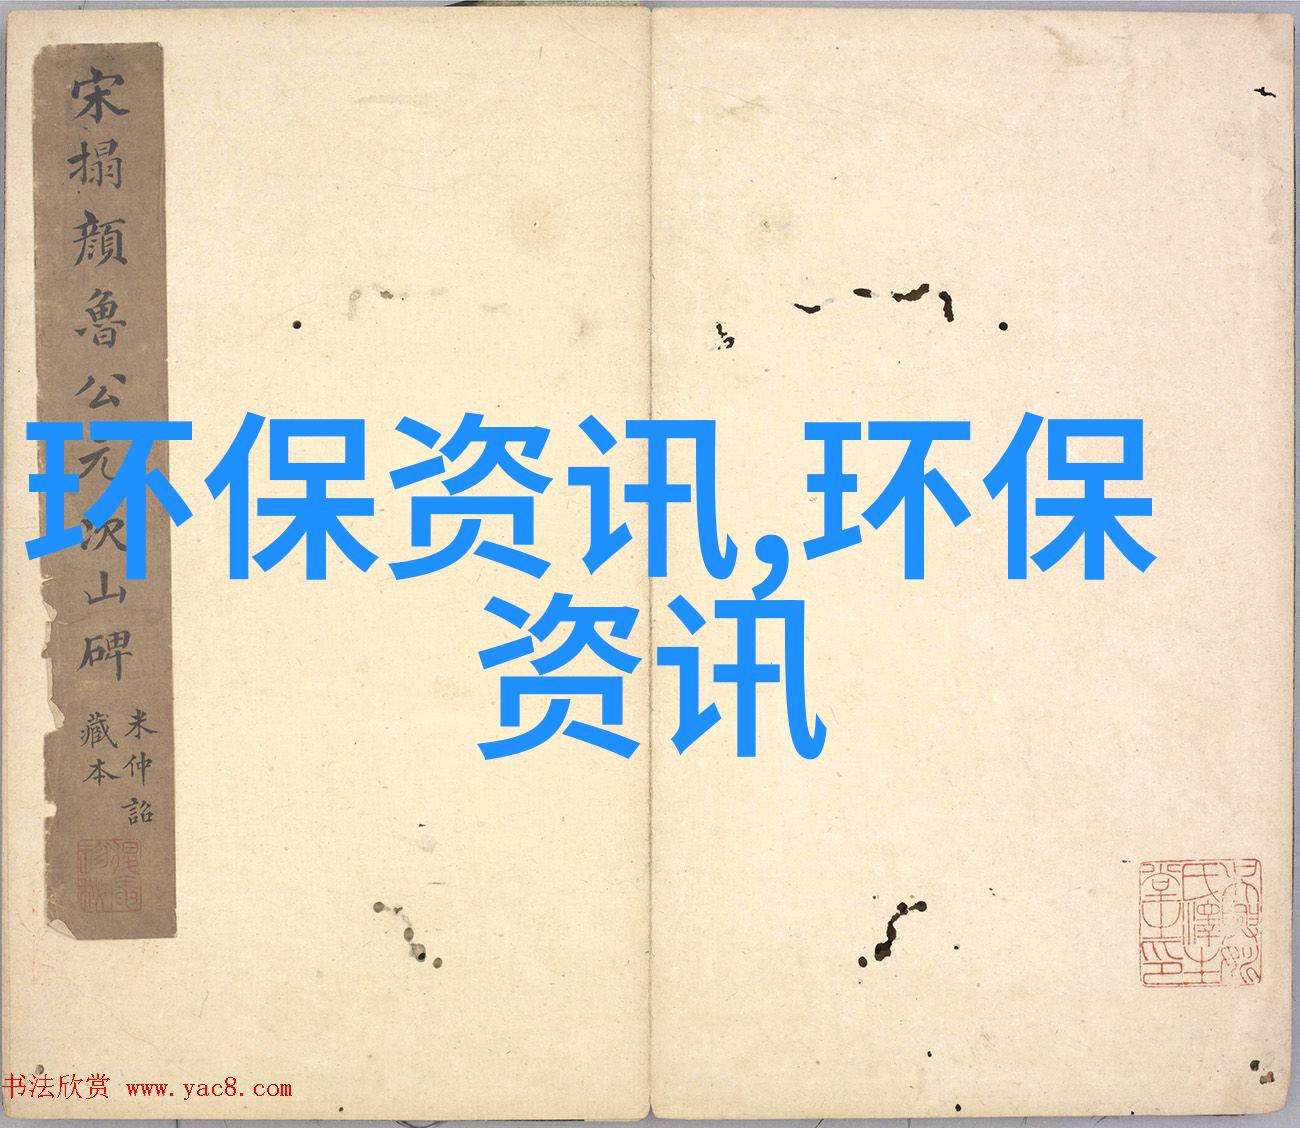 宋搨顔魯公元次山碑
米仲詔
藏本
环保资讯,环保
资讯
书法欣赏 www.yac8.com